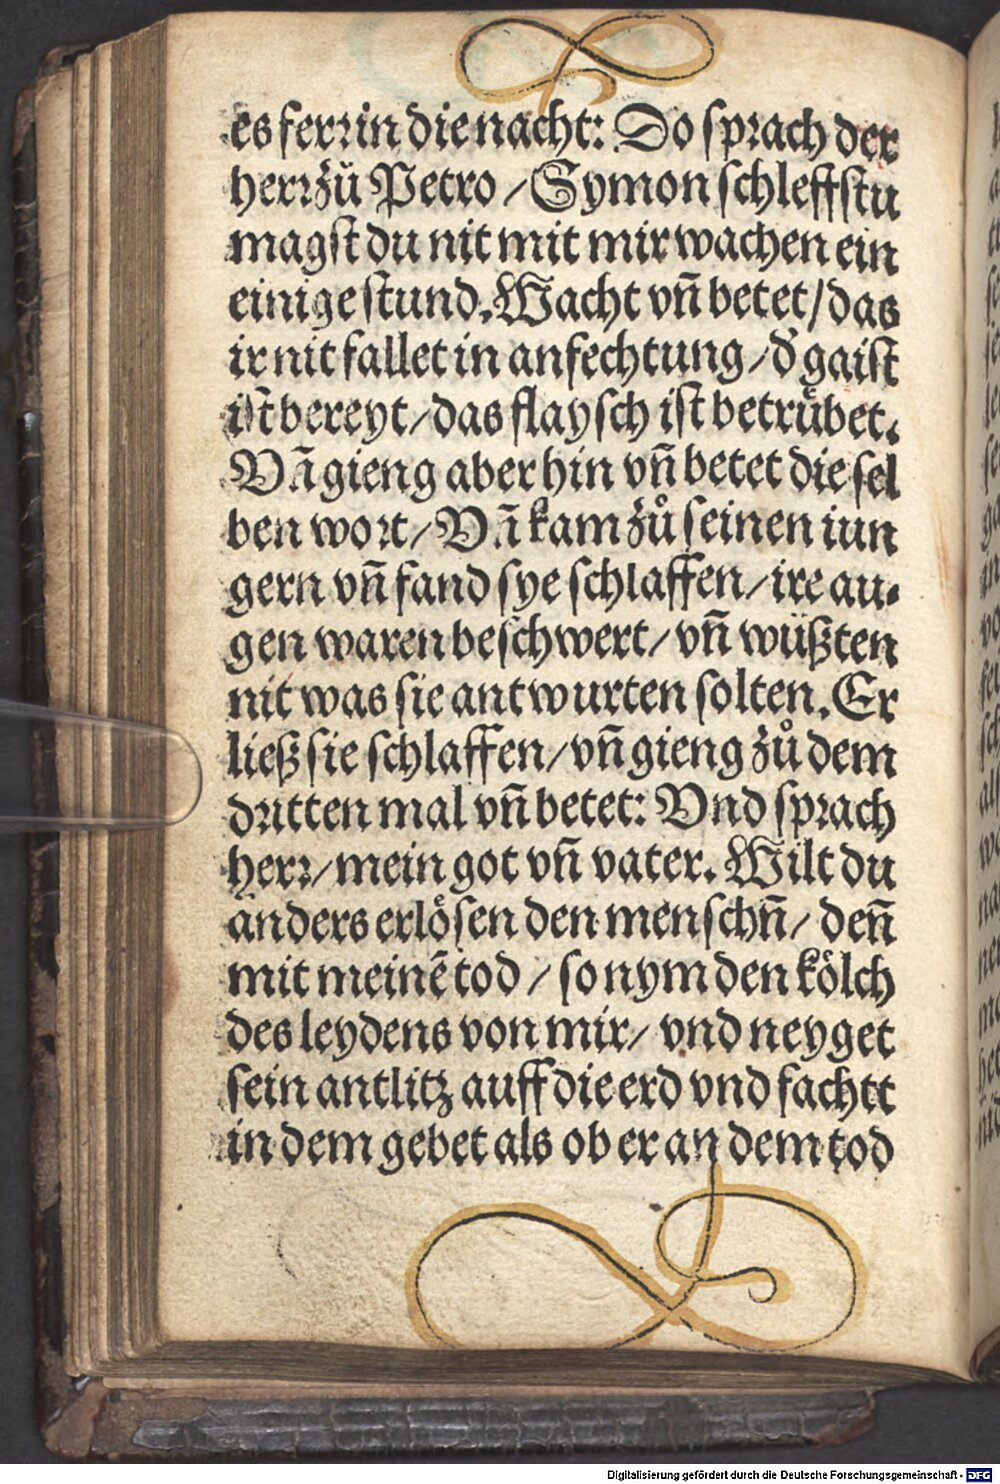 es ferr in die nacht: Do sprach der
herr zů Petro / Symon schleffstu
magst du nit mit mir wachen ein
einige stund. Wacht vn̄ betet / das
ir nit fallet in anfechtung / d' gaist
ist bereyt / das flaysch ist betrůbet.
Vn̄ gieng aber hin vn̄ betet die sel
ben wort / Vn̄ kam zů seinen iun
gern vn̄ fand sye schlaffen / ire au⸗
gen waren beschwert / vn̄ wüßten
nit was sie antwurten solten. Er
ließ sie schlaffen / vn̄ gieng zů dem
dritten mal vn̄ betet: Vnd sprach
herr / mein got vn̄ vater. Wilt du
anders erlösen den menschn̄ / den̄
mit meinē tod / so nym den kölch
des leydens von mir / vnd neyget
sein antlitz auff die erd vnd fachtt
in dem gebet als ob er an dem tod
Digitalisierung gefördert durch die Deutsche Forschungsgemeinschaft - DFG